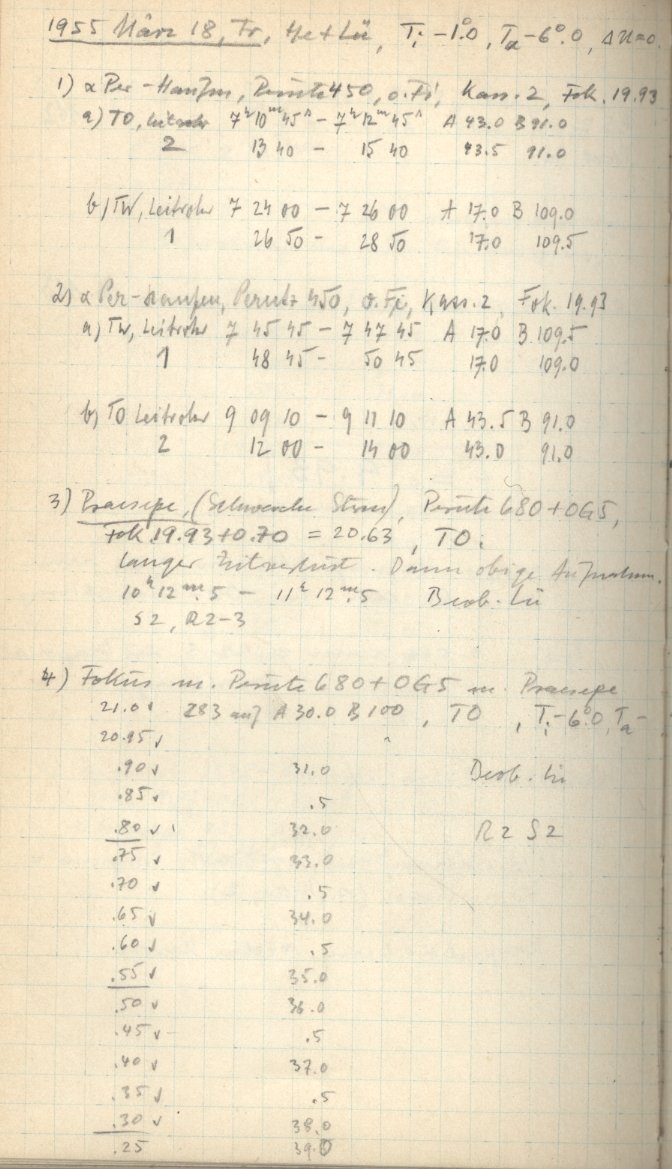 1955 März 18, Fr, He+Lü, Ti -1°.0, Ta -6°.0, ΔN=0.
1) α Per-Haufen, Perutz 450, o. Fi, Kass. 2, Fok. 19.93
a) TO, Leitrohr 7h10m45s - 7h12m45s A 43.0 B 91.0
2 13 40 - 15 40 43.5 91.0
b) TW, Leitrohr 7 24 00 - 7 26 00 A 17.0 B 109.0
1 26 50 - 28 50 17.0 109.5
2) α Per-Haufen, Perutz 450, o. Fi, Kass. 2, Fok. 19.93
a) TW, Leitrohr 7 45 45 - 7 47 45 A 17.0 B 109.5
1 48 45 - 50 45 17.0 109.0
b) TO Leitrohr 9 09 10 - 9 11 10 A 43.5 B 91.0
2 12 00 - 14 00 43.0 91.0
3) Praesepe, (Schwache Sterne), Perutz 680+OG5,
Fok. 19.93+0.70 = 20.63, TO.
Langer Zeitverlust. Dann obige Aufnahm.
10h12m.5 - 11h12m.5 Beob. Lü
S2, R2-3
4) Fokus m. Perutz 680+OG5 m. Praesepe
21.0 ✓ 283 auf A 30.0 B 100, TO, Ti -6°.0, Ta -
20.95 ✓
.90 ✓ 31.0 Beob. Lü
.85 ✓ .5
.80 ✓ 32.0 R2 S2
.75 ✓ 33.0
.70 ✓ .5
.65 ✓ 34.0
.60 ✓ .5
.55 ✓ 35.0
.50 ✓ 36.0
.45 ✓ .5
.40 ✓ 37.0
.35 ✓ .5
.30 ✓ 38.0
.25 39.0